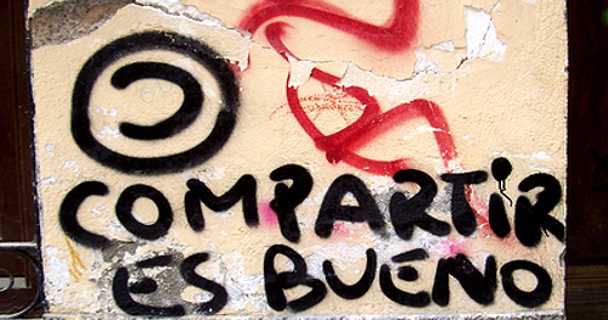 COMPARTIR
ES BUENO